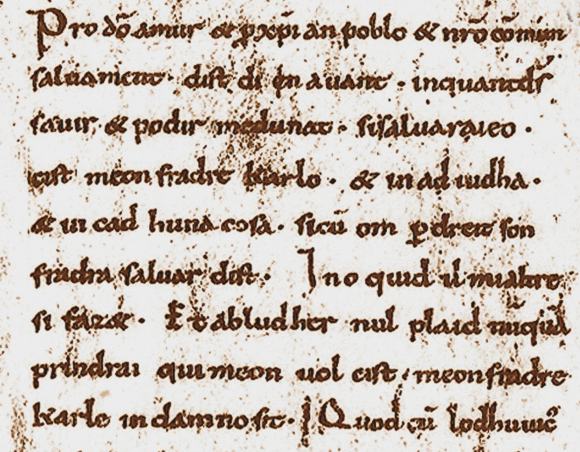 Pro dõ amur & p xp̃ian poblo & nrõ cõmun
saluament. dist di in auant. inquantds̃
sauir & podir medunat. sisaluaraieo.
cist meon fradre Karlo. & in ad iudha.
& in cad huna cosa. sicũ om p dreit son
fradra saluar dist. Ino quid il mialtre
si faz&. Et abludher nul plaid nũquã
prindrai qui meon uol cist. meonfradre
Karle in damno sit. Quod cũ lodhuuic̃